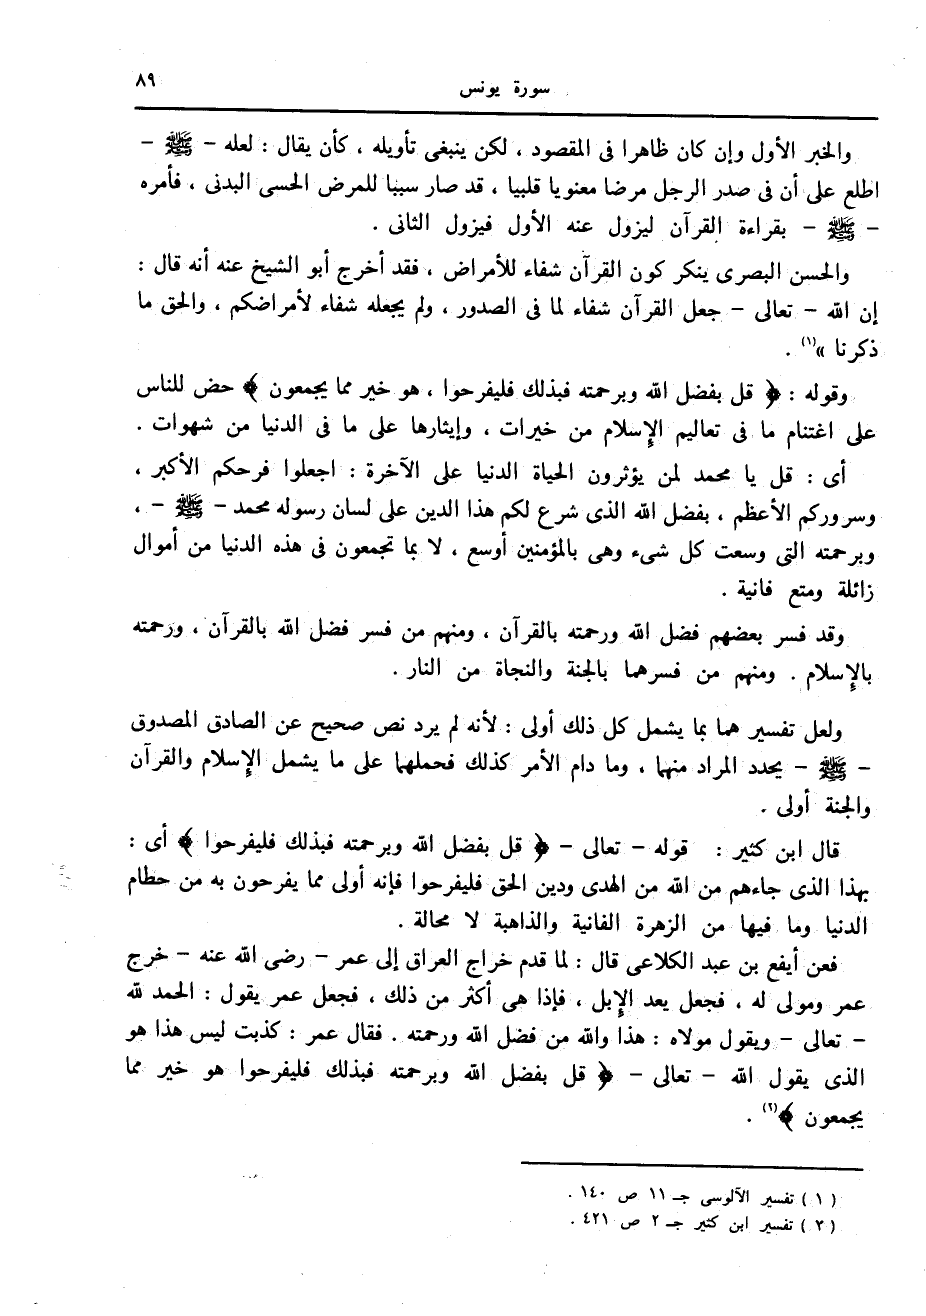 سورة يونس
٨٩
والخبر الأول وإن كان ظاهرا فى المقصود ، لكن ينبغى تأويله ، كأن يقال : لعله – ﷺ –
اطلع على أن فى صدر الرجل مرضا معنويا قلبيا ، قد صار سببا للمرض الحسى البدنى ، فأمره
– ﷺ – بقراءة القرآن ليزول عنه الأول فيزول الثانى .
والحسن البصرى ينكر كون القرآن شفاء للأمراض ، فقد أخرج أبو الشيخ عنه أنه قال :
إن الله – تعالى – جعل القرآن شفاء لما فى الصدور ، ولم يجعله شفاء لأمراضكم ، والحق ما
ذكرنا »(١) .
وقوله : ﴿ قل بفضل الله وبرحمته فبذلك فليفرحوا ، هو خير مما يجمعون ﴾ حض للناس
على اغتنام ما فى تعاليم الإسلام من خيرات ، وإيثارها على ما فى الدنيا من شهوات .
أى : قل يا محمد لمن يؤثرون الحياة الدنيا على الآخرة : اجعلوا فرحكم الأكبر ،
وسروركم الأعظم ، بفضل الله الذى شرع لكم هذا الدين على لسان رسوله محمد – ﷺ – ،
وبرحمته التى وسعت كل شىء وهى بالمؤمنين أوسع ، لا بما تجمعون فى هذه الدنيا من أموال
زائلة ومتع فانية .
وقد فسر بعضهم فضل الله ورحمته بالقرآن ، ومنهم من فسر فضل الله بالقرآن ، ورحمته
بالإسلام . ومنهم من فسرهما بالجنة والنجاة من النار .
ولعل تفسير هما بما يشمل كل ذلك أولى : لأنه لم يرد نص صحيح عن الصادق المصدوق
– ﷺ – يحدد المراد منهما ، وما دام الأمر كذلك فحملهما على ما يشمل الإسلام والقرآن
والجنة أولى .
قال ابن كثير : قوله – تعالى – ﴿ قل بفضل الله وبرحمته فبذلك فليفرحوا ﴾ أى :
بهذا الذى جاءهم من الله من الهدى ودين الحق فليفرحوا فإنه أولى مما يفرحون به من حطام
الدنيا وما فيها من الزهرة الفانية والذاهبة لا محالة .
فعن أيفع بن عبد الكلاعى قال : لما قدم خراج العراق إلى عمر – رضى الله عنه – خرج
عمر ومولى له ، فجعل يعد الإبل ، فإذا هى أكثر من ذلك ، فجعل عمر يقول : الحمد لله
– تعالى – ويقول مولاه : هذا والله من فضل الله ورحمته . فقال عمر : كذبت ليس هذا هو
الذى يقول الله – تعالى – ﴿ قل بفضل الله وبرحمته فبذلك فليفرحوا هو خير مما
يجمعون ﴾(٢) .
( ١ ) تفسير الآلوسى جـ ١١ ص ١٤٠ .
( ٢ ) تفسير ابن كثير جـ ٢ ص ٤٢١ .